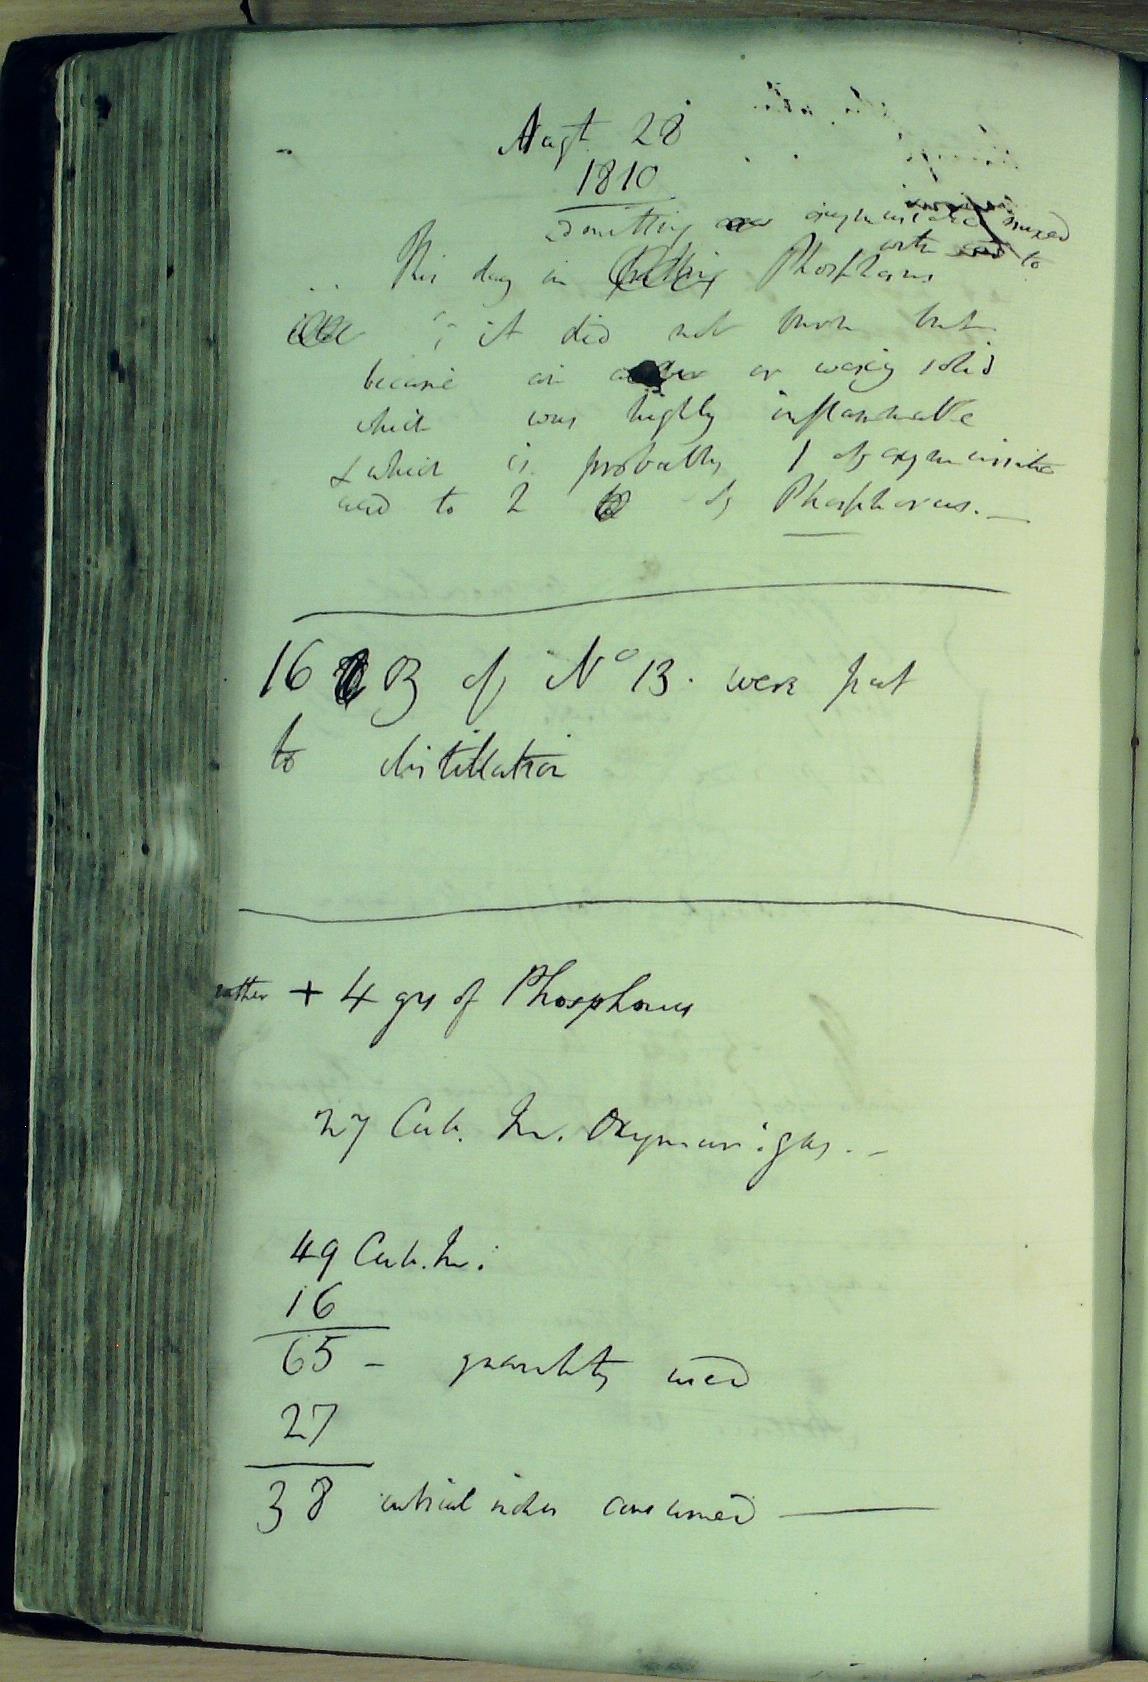 Augt. 28
1810
admitting oxymuriatic mixed
with to
This day in Phosphorus
; it did not burn but
became an or waxy solid
which was highly inflammable
& which is probably 1 of oxymuriatic
acid to 2 of Phosphorus. —
16 oz of No 13. were put
to distillation
rather + 4 grs of Phosphorus
27 Cub. In. Oxymuri: gas. –
49 Cub. In:
16
65 – quantity used
27
38 cubical inches consumed —